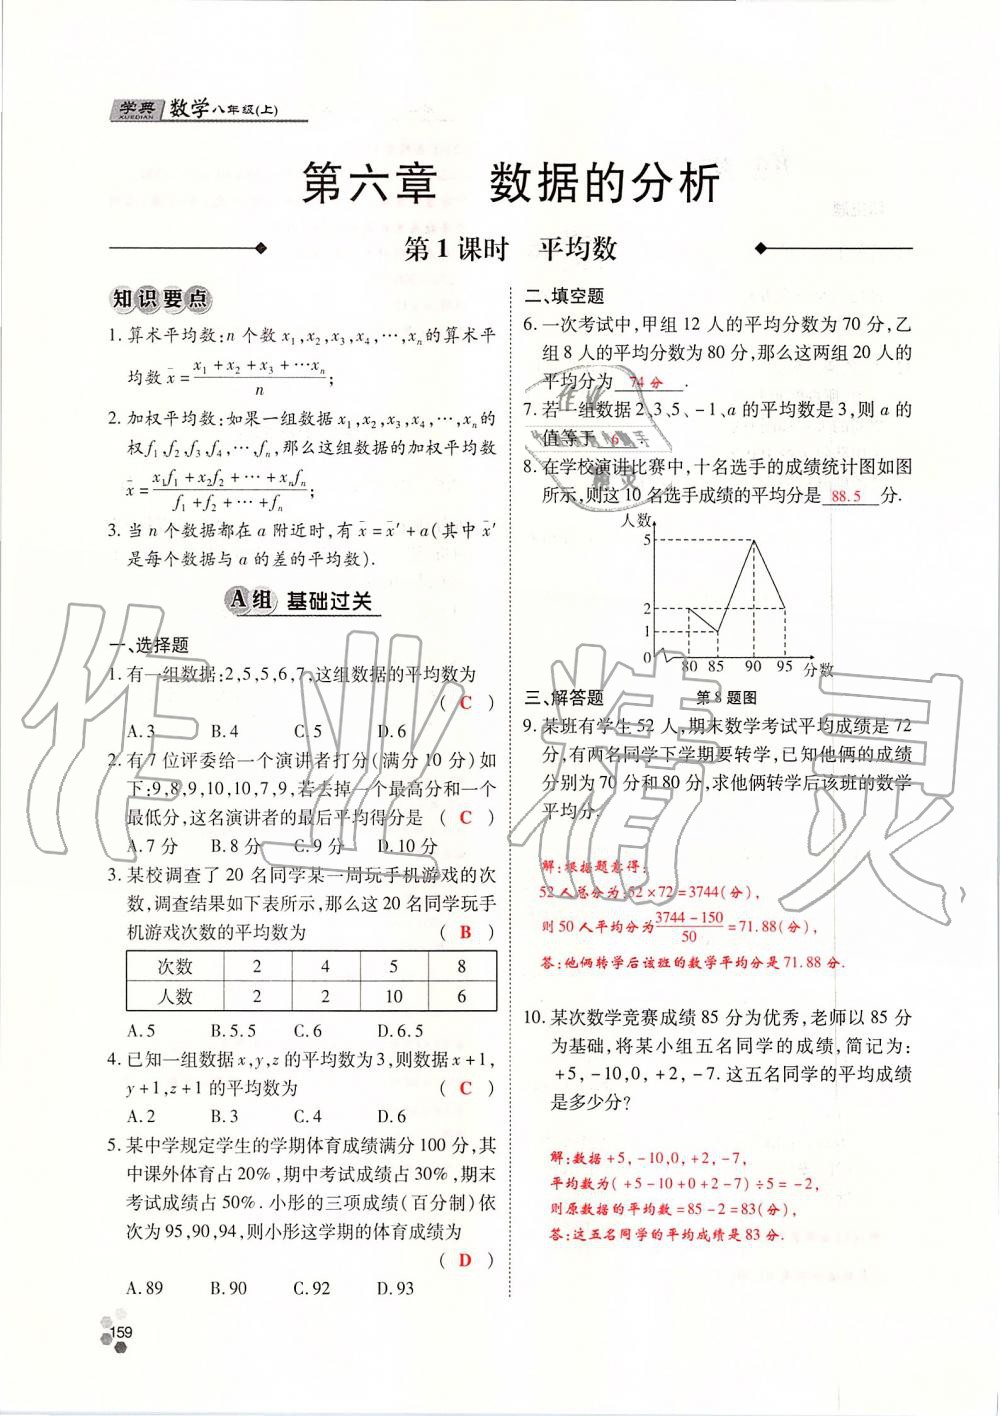 学典 数学八年级(上)
XUEDIAN
第六章 数据的分析
第1课时 平均数
知识要点
1. 算术平均数:n 个数 x₁,x₂,x₃,x₄,…,xₙ的算术平
均数 x̄ = (x₁+x₂+x₃+…xₙ)/n;
2. 加权平均数:如果一组数据 x₁,x₂,x₃,x₄,…,xₙ的
权f₁、f₂、f₃、f₄,…,fₙ,那么这组数据的加权平均数
x̄ = (x₁f₁+x₂f₂+…+xₙfₙ)/(f₁+f₂+…+fₙ);
3. 当 n 个数据都在 a 附近时,有 x̄ = x̄′ + a(其中 x̄′
是每个数据与 a 的差的平均数).
A组 基础过关
一、选择题
1. 有一组数据:2,5,5,6,7,这组数据的平均数为
( C )
A.3 B.4 C.5 D.6
2. 有7位评委给一个演讲者打分(满分10分)如
下:9,8,9,10,10,7,9,若去掉一个最高分和一个
最低分,这名演讲者的最后平均得分是 ( C )
A.7分 B.8分 C.9分 D.10分
3. 某校调查了20名同学某一周玩手机游戏的次
数,调查结果如下表所示,那么这20名同学玩手
机游戏次数的平均数为 ( B )
次数 2 4 5 8
人数 2 2 10 6
A.5 B.5.5 C.6 D.6.5
4. 已知一组数据x,y,z的平均数为3,则数据x+1,
y+1,z+1的平均数为 ( C )
A.2 B.3 C.4 D.6
5. 某中学规定学生的学期体育成绩满分100分,其
中课外体育占20%,期中考试成绩占30%,期末
考试成绩占50%.小彤的三项成绩(百分制)依
次为95,90,94,则小彤这学期的体育成绩为
( D )
A.89 B.90 C.92 D.93
159
二、填空题
6. 一次考试中,甲组12人的平均分数为70分,乙
组8人的平均分数为80分,那么这两组20人的
平均分为 74分 .
7. 若一组数据2,3,5、-1、a的平均数是3,则a的
值等于 6 .
8. 在学校演讲比赛中,十名选手的成绩统计图如图
所示,则这10名选手成绩的平均分是 88.5 分.
人数
5
2
1
0 80 85 90 95 分数
第8题图
三、解答题
9. 某班有学生52人,期末数学考试平均成绩是72
分,有两名同学下学期要转学,已知他俩的成绩
分别为70分和80分,求他俩转学后该班的数学
平均分.
解:根据题意得:
52人总分为:52×72=3744(分),
则50人平均分为(3744-150)/50=71.88(分),
答:他俩转学后该班的数学平均分是71.88分.
10. 某次数学竞赛成绩85分为优秀,老师以85分
为基础,将某小组五名同学的成绩,简记为:
+5,-10,0,+2,-7.这五名同学的平均成绩
是多少分?
解:数据+5,-10,0,+2,-7,
平均数为(+5-10+0+2-7)÷5=-2,
则原数据的平均数=85-2=83(分),
答:这五名同学的平均成绩是83分.
作业精灵